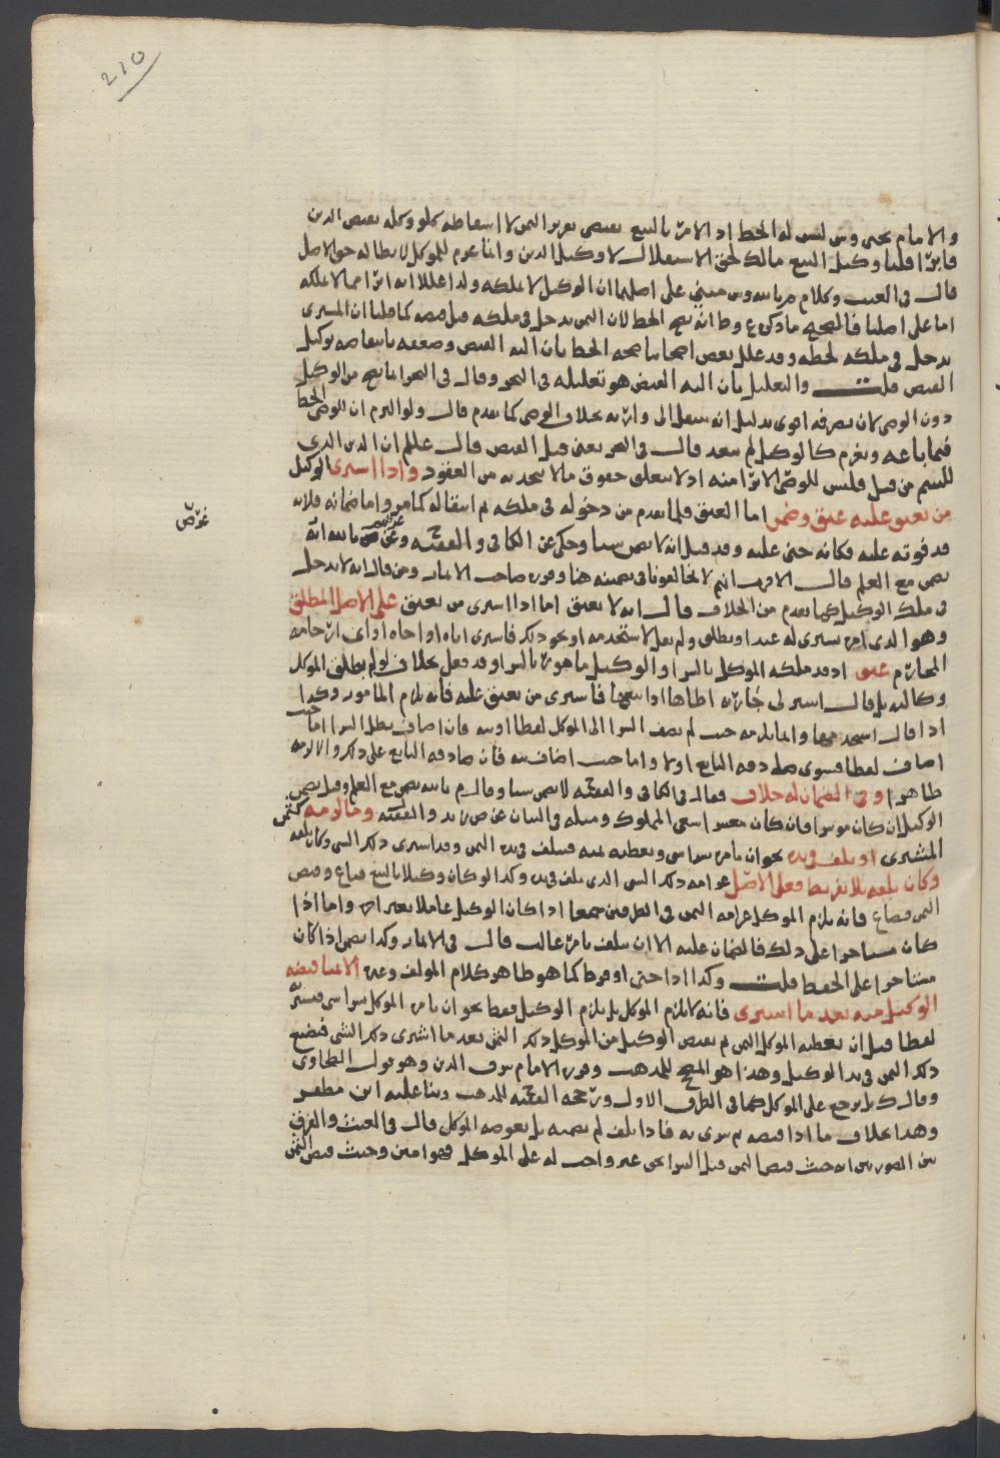 210
والامام يحيى وش ليس له الحط اذ الامر بالبيع يقتضي تقرير الثمن لا اسقاطه كملو وكله بقبض الدين
فابرا قلنا وكيل البيع مالك لحق الاستقلال لا وكيل الدين وانما غرم للموكل لابطاله حق الاصل
قال في الغيث وكلام م بالله وش مبني على اصلهما ان الوكيل لا يملكه ولذا عللا انه ابرا عما لا يملكه
اما على اصلنا فالصحيح ما ذكره ع وط انه يصح الحط لان الثمن يدخل في ملكه قبل قبضه كما قلنا ان المشترى
يدخل في ملكه لحظة وقد علل بعض اصحابنا صحة الحط بان اليه القبض وضعفه بانتقاضه بوكيل
القبض قلت والتعليل بان اليه القبض هو تعليله في البحر وقال في البحر انما يصح من الوكيل
دون الوصي لان تصرفه اقوى بدليل انه ينتقل الى وارثه بخلاف الوصي كما تقدم قال ولو ابرم ان للوصي الحط
فيما باعه ويغرم كالوكيل لم يبعد قال في الغيث يعني قبل القبض قال علم ان الدين الذي
لليتيم من قبل فليس للوصي الابرا منه اذ لا يتعلق حقوق مالا يتجدد به من العقود واذا اشترى الوكيل
من يعتق عليه عتق وضمن اما العتق فلما تقدم من دخوله في ملكه ثم انتقاله كما مر واما ضمانه فلانه
غرّض
قد فوته عليه فكانه جنى عليه وقد قيل انه لا يضمن شيا وحكي عن الكافي والفقيه وعن م بالله انه
يضمن مع العلم قال الاقرب انهم لا يخالفونا في تضمينه هنا وقرره صاحب الاثمار ومن قال انه لا يدخل
في ملك الوكيل كما تقدم من الخلاف قال انه لا يعتق اما اذا اشترى من يعتق على الاصل المطلق
وهو الذي امره يشتري له عبدا ويطلق ولم يقل لاستخدمه او نحو ذلك فاشترى اباه او اخاه او اي ارحامه
المحارم عتق اذ قد ملكه الموكل بالشرا والوكيل ماهو ربا بالشرا وقد فعل بخلاف لو لم يطلق الموكل
وكالته بل قال اشتر لي جارية اطاها او ابيعها فاشترى من يعتق عليه فانه يلزم المامور وكذا
اذا قال استخدمها وانما يلزمه حيث لم يضف الشرا الى الموكل لفظا او نيه فان اضاف بطل الشرا اما حيث
اضاف لفظا فسوى صادقه البايع او لا واما حيث اضاف نيه فان صادقه البايع على ذلك والا لزمه
ظاهرا وفي الضمان له خلاف فقال في الكافي والفقيه لا يضمن شيا وقال م بالله يضمن مع العلم وقيل يضمن
الوكيل ان كان موسرا فان كان معسرا سعى المملوك ومثله في البيان عن ص زيد والفقيه وما لزمه كثمن
المشترى او تلف في يده نحو ان يامره بشرا شي ويعطيه ثمنه فيتلف في يده الثمن وقد اشترى ذلك الشي وكان تلفه
وكان تلفه بلا تفريط فعلى الاصل غرامة ذلك الشي الذي تلف في يده وكذا لو كان وكيلا بالبيع فباع وقبض
الثمن فضاع فانه يلزم الموكل غرامة الثمن في الطرفين جميعا اذا كان الوكيل عاملا بغير اجره واما اذا
كان مستاجرا على ذلك فالضمان عليه الا ان يتلف بامر غالب قال في الاثمار وكذا يضمن اذا كان
مستاجرا على الحفظ قلت وكذا اذا جنى او فرط كما هو ظاهر كلام المولف وغيره الا ثمنا قبضه
الوكيل منه بعد ما اشترى فانه لا يلزم الموكل بل يلزم الوكيل فقط نحو ان يامره الموكل بشرا شي فيشتريه
لفظا قبل ان يعطيه الموكل الثمن ثم يقبض الوكيل من الموكل ذلك الثمن بعد ما اشترى ذلك الشي فيضيع
ذلك الثمن في يد الوكيل وهذا هو المصحح للمذهب وقرره الامام شرف الدين وهو قول الطحاوي
وقال ك بل يرجع على الموكل كما في الطرف الاول ورجحه الفقيه للمذهب وبنا عليه ابن مظفر
وهذا بخلاف ما اذا قبضه ثم شرى به فاذا تلف لم يضمنه بل يعوضه الموكل قال في الغيث والفرق
بين الصورتين انه حيث قبض الثمن قبل الشرا بحق غير واجب له على الموكل فهو امين وحيث قبض الثمن